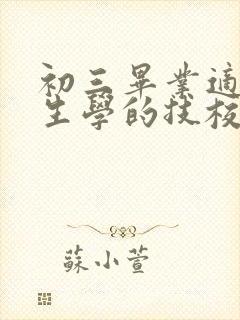 初三畢業適
生學的技校
蘇小萱